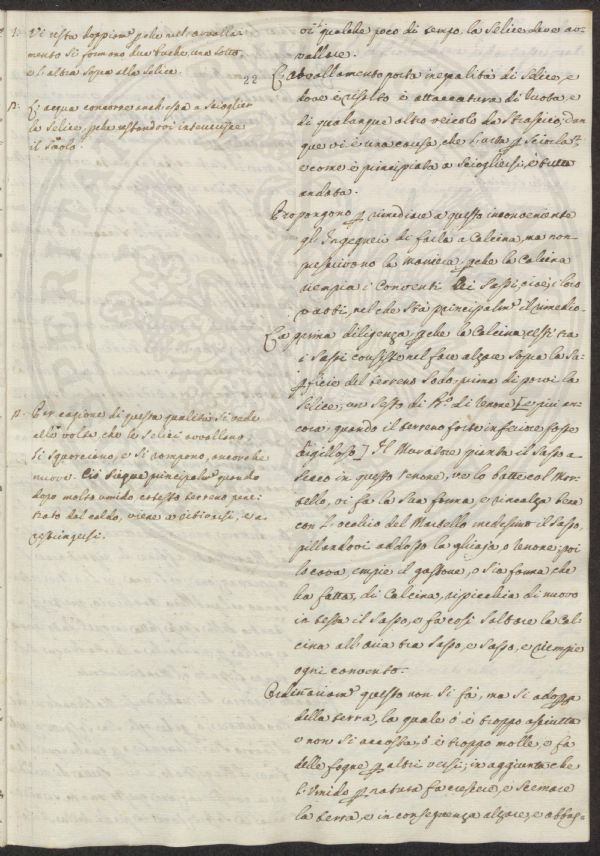 1. Vi resta doppiam.te perche nell'avvalla-
mento si formano due buche, una sotto,
e l'altra sopra alla Selice.
22
p.a L'acqua concorre anch'essa a sciogliere
le Selice, perche restandovi
il Suolo.
p.a Per cagione di questa qualità si vede
alle volte, che le Selici avvallano,
si squarciano, e si rompono, ancorche
nuove. Ciò siegue principalm.te quando
dopo molto umido cotesto terreno pene-
trato dal caldo, viene a ritirarsi, e a
restringersi.
qualche poco di tempo la Selice deve av-
vallare.
L'avvallamento porta inegalità di Selice, e
dove è risalto è attaccatura di Ruota, e
di qualunque altro veicolo da Strascico, dun
que vi è una causa, che
e come è principiata a sciogliersi, è tutta
andata.
Propongono per rimediare a questo inconveniente
gl'Ingegneri di farla a Calcina, ma non
prescrivono la maniera, perche la Calcina
riempia i Conventi dei Sassi, cioè i loro
vuoti, nel che stà principalm.te il rimedio.
La prima diligenza perche la Calcina resti tra
i Sassi consiste nel fare alzare sopra la Su-
perficie del terreno sodo, prima di porvi la
Selice, un Sesto di P.mo di Renone [e più an-
cora quando il terreno forte inferiore fosse
argilloso.] Il Muratore pianta il Sasso a
secco in questo renone, ve lo batte col Mar-
tello, vi fa la sua forma, e rincalza bene
con l'occhio del Martello medesimo il Sasso,
pillandovi addosso la ghiaja, o renone; poi
lo cava, empie il gattone, o sia forma che
ha fatta, di Calcina, ripicchia di nuovo
in testa il Sasso, e fa così saltare la Cal-
cina all'aria tra Sasso, e Sasso, e riempie
ogni convento.
Ordinariam.te questo non si fà, ma si adopra
della terra, la quale ò è troppo asciutta
e non si accosta, ò è troppo molle, e fa
delle fogne per altri versi; in aggiunta che
l'Umido per natura fa crescere, e scemare
la terra, e in conseguenza alzare, e abbas-